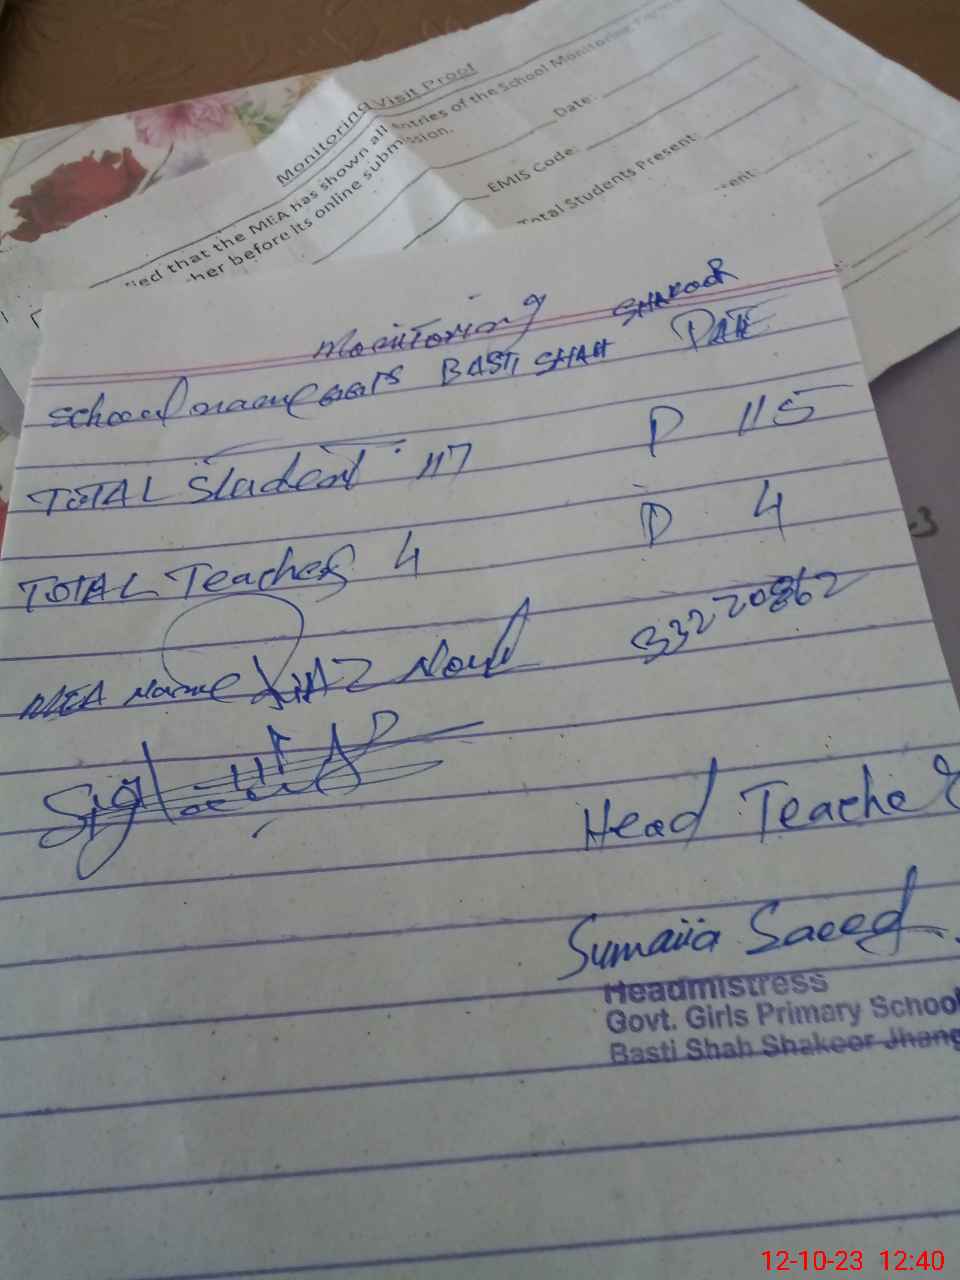 Monitoring Visit Proof
ied that the MEA has shown all entries of the School Monitoring
her before its online submission.
Date:
EMIS Code:
Total Students Present:
Monitoring
School name BASTI SHAH SHAKOOR DATE
TOTAL Student 117 P 115
TOTAL Teacher 4 P 4
MEA Name 33220862
Head Teacher
Sumaiia Saeed
Headmistress
Govt. Girls Primary School
Basti Shah Shakoor Jhang
12-10-23 12:40